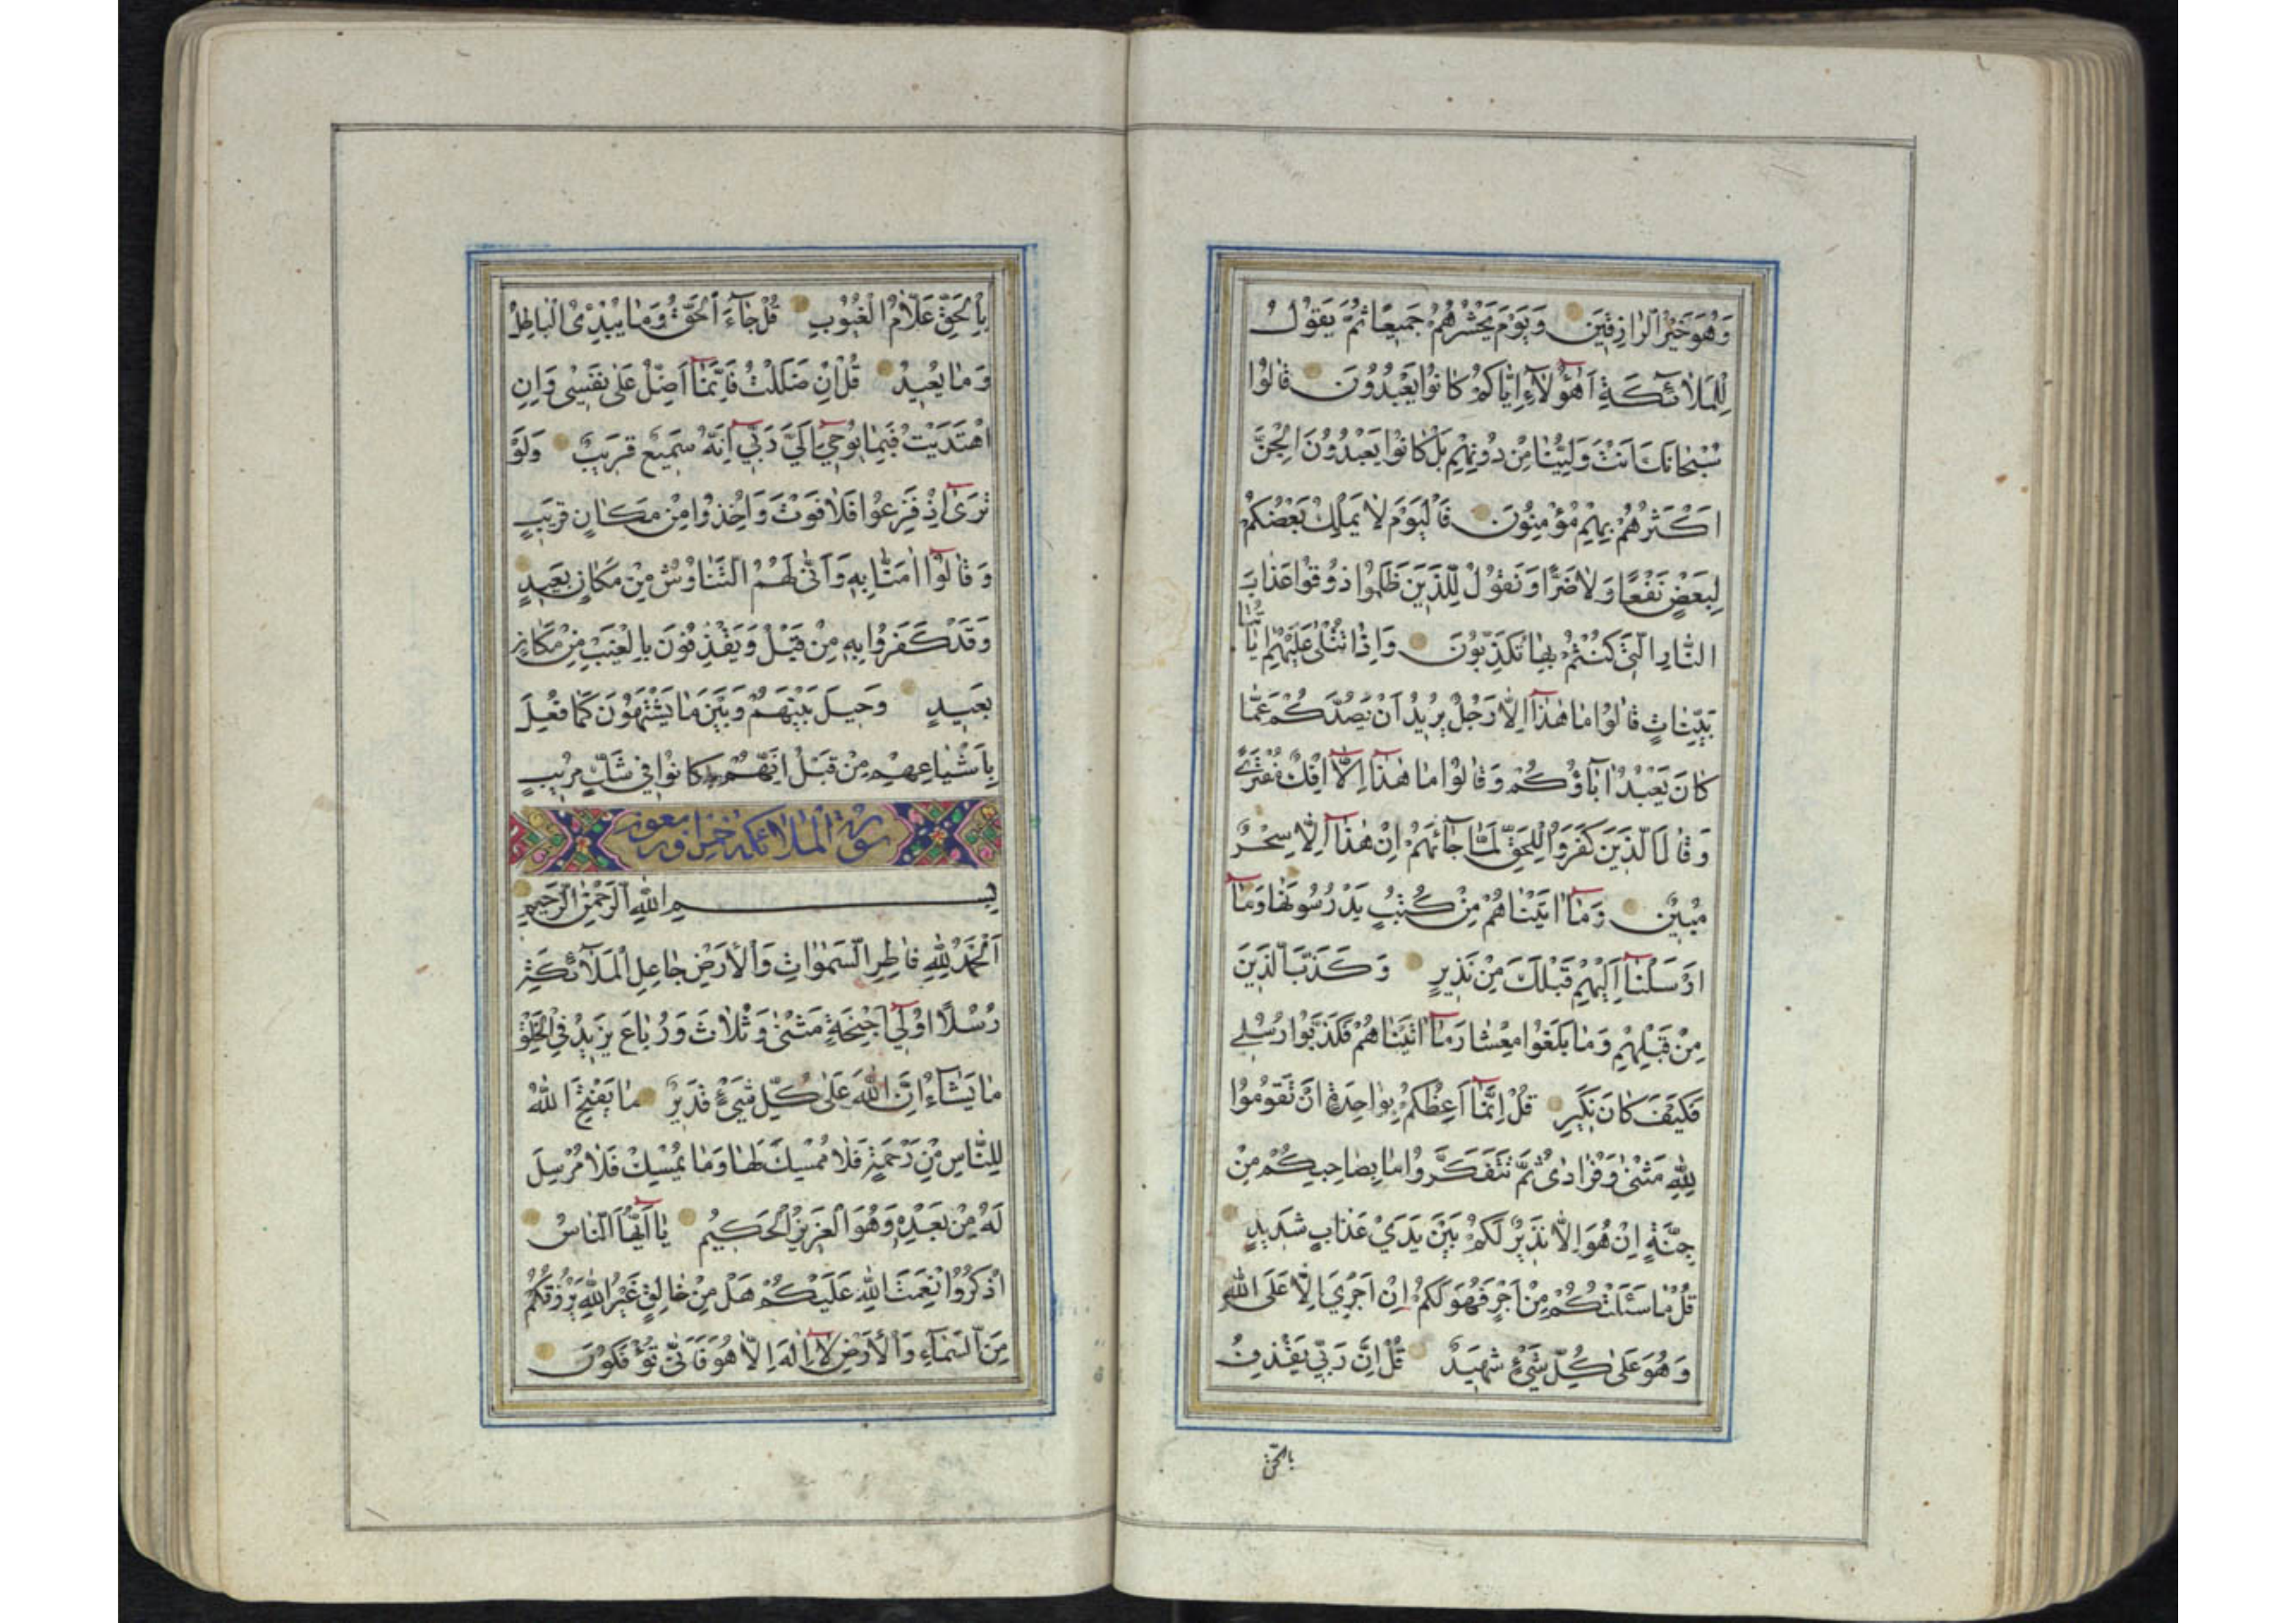 وَهُوَ خَيْرُ الرَّازِقِينَ وَيَوْمَ يَحْشُرُهُمْ جَمِيعًا ثُمَّ يَقُولُ
لِلْمَلَائِكَةِ أَهٰؤُلَاءِ إِيَّاكُمْ كَانُوا يَعْبُدُونَ قَالُوا
سُبْحَانَكَ أَنْتَ وَلِيُّنَا مِنْ دُونِهِمْ بَلْ كَانُوا يَعْبُدُونَ الْجِنَّ
اَكْثَرُهُمْ بِهِمْ مُؤْمِنُونَ فَالْيَوْمَ لَا يَمْلِكُ بَعْضُكُمْ
لِبَعْضٍ نَفْعًا وَلَا ضَرًّا وَنَقُولُ لِلَّذِينَ ظَلَمُوا ذُوقُوا عَذَابَ
النَّارِ الَّتِي كُنْتُمْ بِهَا تُكَذِّبُونَ وَإِذَا تُتْلَىٰ عَلَيْهِمْ اٰيَاتُنَا
بَيِّنَاتٍ قَالُوا مَا هٰذَا إِلَّا رَجُلٌ يُرِيدُ أَنْ يَصُدَّكُمْ عَمَّا
كَانَ يَعْبُدُ اٰبَاؤُكُمْ وَقَالُوا مَا هٰذَا إِلَّا إِفْكٌ مُفْتَرًى
وَقَالَ الَّذِينَ كَفَرُوا لِلْحَقِّ لَمَّا جَائَهُمْ إِنْ هٰذَا إِلَّا سِحْرٌ
مُبِينٌ وَمَا اٰتَيْنَاهُمْ مِنْ كُتُبٍ يَدْرُسُونَهَا وَمَا
اَرْسَلْنَا إِلَيْهِمْ قَبْلَكَ مِنْ نَذِيرٍ وَكَذَّبَ الَّذِينَ
مِنْ قَبْلِهِمْ وَمَا بَلَغُوا مِعْشَارَ مَا اٰتَيْنَاهُمْ فَكَذَّبُوا رُسُلِي
فَكَيْفَ كَانَ نَكِيرِ قُلْ إِنَّمَا أَعِظُكُمْ بِوَاحِدَةٍ أَنْ تَقُومُوا
لِلّٰهِ مَثْنَىٰ وَفُرَادَىٰ ثُمَّ تَتَفَكَّرُوا مَا بِصَاحِبِكُمْ مِنْ
جِنَّةٍ إِنْ هُوَ إِلَّا نَذِيرٌ لَكُمْ بَيْنَ يَدَيْ عَذَابٍ شَدِيدٍ
قُلْ مَا سَئَلْتُكُمْ مِنْ أَجْرٍ فَهُوَ لَكُمْ إِنْ أَجْرِيَ إِلَّا عَلَى اللّٰهِ
وَهُوَ عَلَىٰ كُلِّ شَيْءٍ شَهِيدٌ قُلْ إِنَّ رَبِّي يَقْذِفُ
بالحق
بِالْحَقِّ عَلَّامُ الْغُيُوبِ قُلْ جَاءَ الْحَقُّ وَمَا يُبْدِئُ الْبَاطِلُ
وَمَا يُعِيدُ قُلْ إِنْ ضَلَلْتُ فَإِنَّمَا أَضِلُّ عَلَىٰ نَفْسِي وَإِنِ
اهْتَدَيْتُ فَبِمَا يُوحِي إِلَيَّ رَبِّي إِنَّهُ سَمِيعٌ قَرِيبٌ وَلَوْ
تَرَىٰ إِذْ فَزِعُوا فَلَا فَوْتَ وَأُخِذُوا مِنْ مَكَانٍ قَرِيبٍ
وَقَالُوا اٰمَنَّا بِهِ وَأَنَّىٰ لَهُمُ التَّنَاوُشُ مِنْ مَكَانٍ بَعِيدٍ
وَقَدْ كَفَرُوا بِهِ مِنْ قَبْلُ وَيَقْذِفُونَ بِالْغَيْبِ مِنْ مَكَانٍ
بَعِيدٍ وَحِيلَ بَيْنَهُمْ وَبَيْنَ مَا يَشْتَهُونَ كَمَا فُعِلَ
بِأَشْيَاعِهِمْ مِنْ قَبْلُ إِنَّهُمْ كَانُوا فِي شَكٍّ مُرِيبٍ
سورة الملائكة خمس و اربعون
بِسْمِ اللّٰهِ الرَّحْمٰنِ الرَّحِيمِ
اَلْحَمْدُ لِلّٰهِ فَاطِرِ السَّمٰوَاتِ وَالْأَرْضِ جَاعِلِ الْمَلَائِكَةِ
رُسُلًا اُولِي أَجْنِحَةٍ مَثْنَىٰ وَثُلَاثَ وَرُبَاعَ يَزِيدُ فِي الْخَلْقِ
مَا يَشَاءُ إِنَّ اللّٰهَ عَلَىٰ كُلِّ شَيْءٍ قَدِيرٌ مَا يَفْتَحِ اللّٰهُ
لِلنَّاسِ مِنْ رَحْمَةٍ فَلَا مُمْسِكَ لَهَا وَمَا يُمْسِكْ فَلَا مُرْسِلَ
لَهُ مِنْ بَعْدِهِ وَهُوَ الْعَزِيزُ الْحَكِيمُ يَا أَيُّهَا النَّاسُ
اذْكُرُوا نِعْمَتَ اللّٰهِ عَلَيْكُمْ هَلْ مِنْ خَالِقٍ غَيْرُ اللّٰهِ يَرْزُقُكُمْ
مِنَ السَّمَاءِ وَالْأَرْضِ لَا إِلٰهَ إِلَّا هُوَ فَأَنَّىٰ تُؤْفَكُونَ